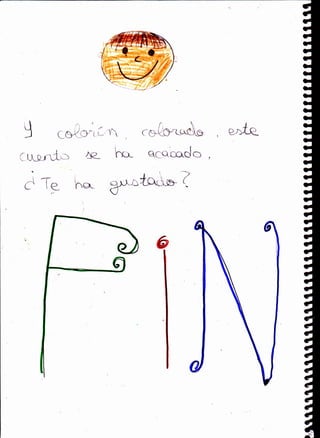 Y colorín, colorado, este
cuento se ha acabado.
¿Te ha gustado?
FiN